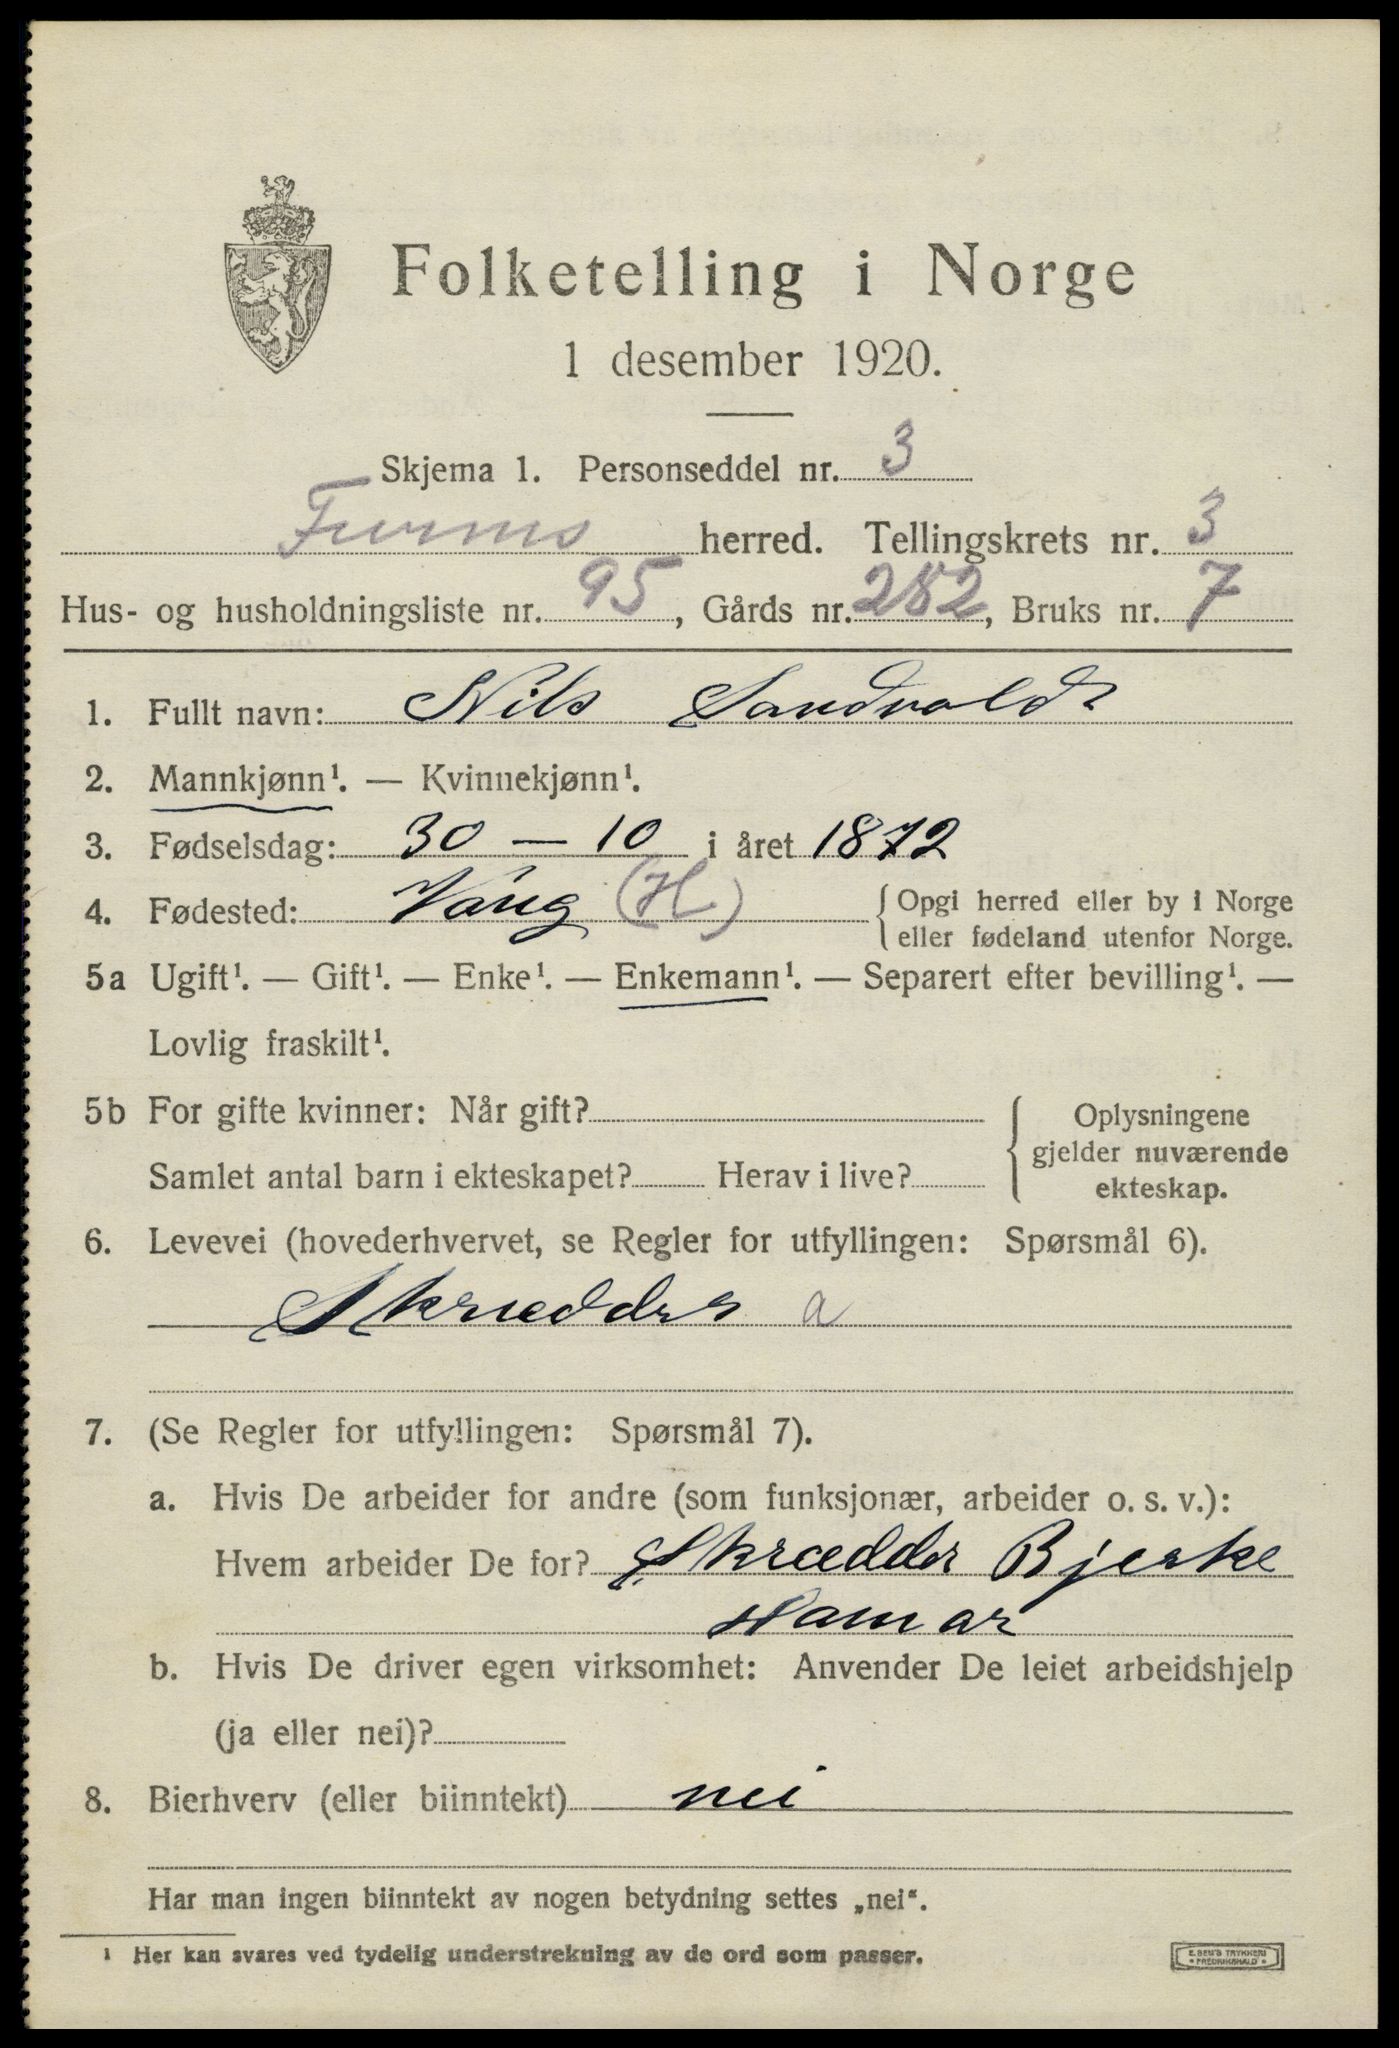 Folketelling i Norge
1 desember 1920.
Skjema 1. Personseddel nr. 3
Furnes herred. Tellingskrets nr. 3
Hus- og husholdningsliste nr. 95, Gårds nr. 282, Bruks nr. 7
1. Fullt navn: Nils Sandvold
2. Mannkjønn¹. — Kvinnekjønn¹.
3. Fødselsdag: 30 — 10 i året 1872
4. Fødested: Vang (H.) { Opgi herred eller by i Norge
eller fødeland utenfor Norge.
5a Ugift¹. — Gift¹. — Enke¹. — Enkemann¹. — Separert efter bevilling¹. —
Lovlig fraskilt¹.
5b For gifte kvinner: Når gift?
Samlet antal barn i ekteskapet? Herav i live?
{ Oplysningene
gjelder nuværende
ekteskap.
6. Levevei (hovederhvervet, se Regler for utfyllingen: Spørsmål 6).
Skrædder a
7. (Se Regler for utfyllingen: Spørsmål 7).
a. Hvis De arbeider for andre (som funksjonær, arbeider o. s. v.):
Hvem arbeider De for? Skrædder Bjerke
Hamar
b. Hvis De driver egen virksomhet: Anvender De leiet arbeidshjelp
(ja eller nei)?
8. Bierhverv (eller biinntekt) nei
Har man ingen biinntekt av nogen betydning settes „nei“.
¹ Her kan svares ved tydelig understrekning av de ord som passer.
E. SEM'S TRYKKERI
* FREDRIKSHALD *